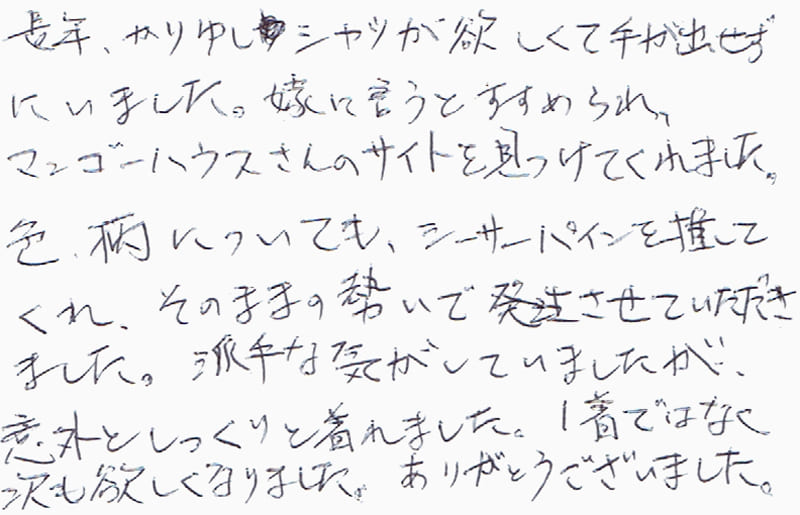 長年、かりゆしシャツが欲しくて手が出せず
にいました。嫁に言うとすすめられ、
マンゴーハウスさんのサイトを見つけてくれました。
色、柄についても、シーサーパインを推して
くれ、そのままの勢いで発注させていただき
ました。派手な気がしていましたが、
意外としっくりと着れました。1着ではなく
次も欲しくなりました。ありがとうございました。